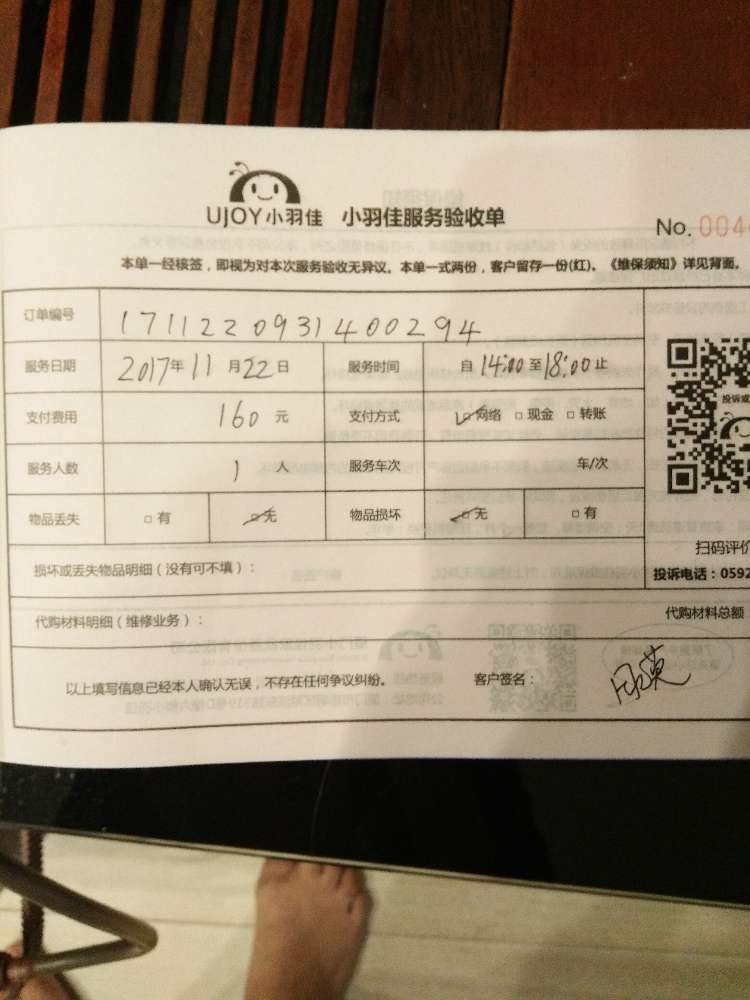 UJOY小羽佳 小羽佳服务验收单
No. 004
本单一经核签，即视为对本次服务验收无异议。本单一式两份，客户留存一份(红)。《维保须知》详见背面。
订单编号 1711220931400294
服务日期 2017年11月22日 服务时间 自14:00至18:00止
支付费用 160元 支付方式 ☑网络 □现金 □转账
投诉或
服务人数 1人 服务车次 车/次
物品丢失 □有 ☑无 物品损坏 ☑无 □有
扫码评价
损坏或丢失物品明细（没有可不填）：
投诉电话：0592
代购材料明细（维修业务）：
代购材料总额：
以上填写信息已经本人确认无误，不存在任何争议纠纷。 客户签名：